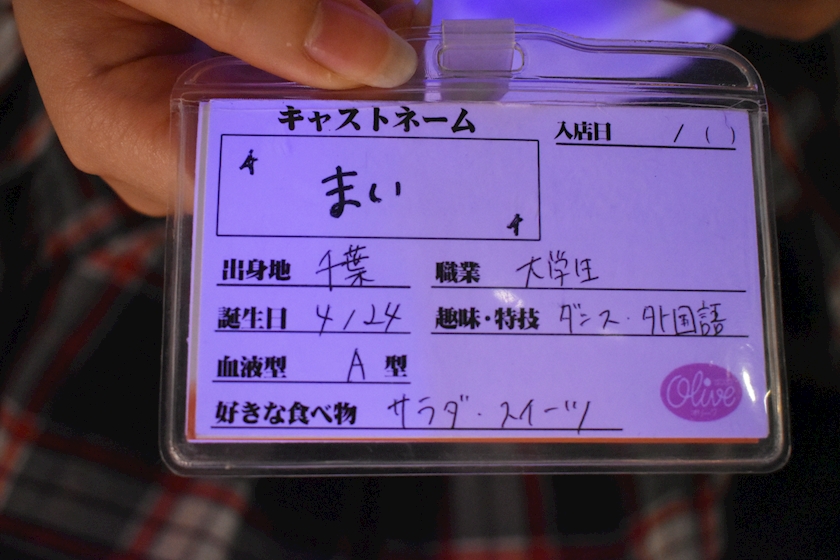 キャストネーム
入店日 / ( )
まい
出身地 千葉 職業 大学生
誕生日 4/24 趣味・特技 ダンス・外国語
血液型 A 型
好きな食べ物 サラダ・スイーツ
Olive